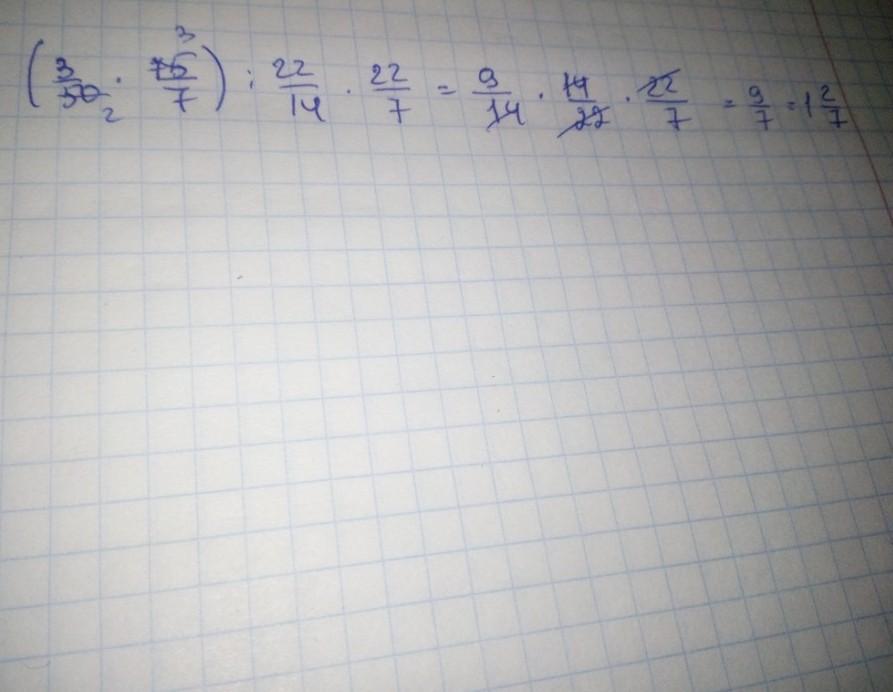 (3/50 2 · 75 3/7) : 22/14 · 22/7 = 9/14 · 14/22 · 22/7 = 9/7 = 1 2/7